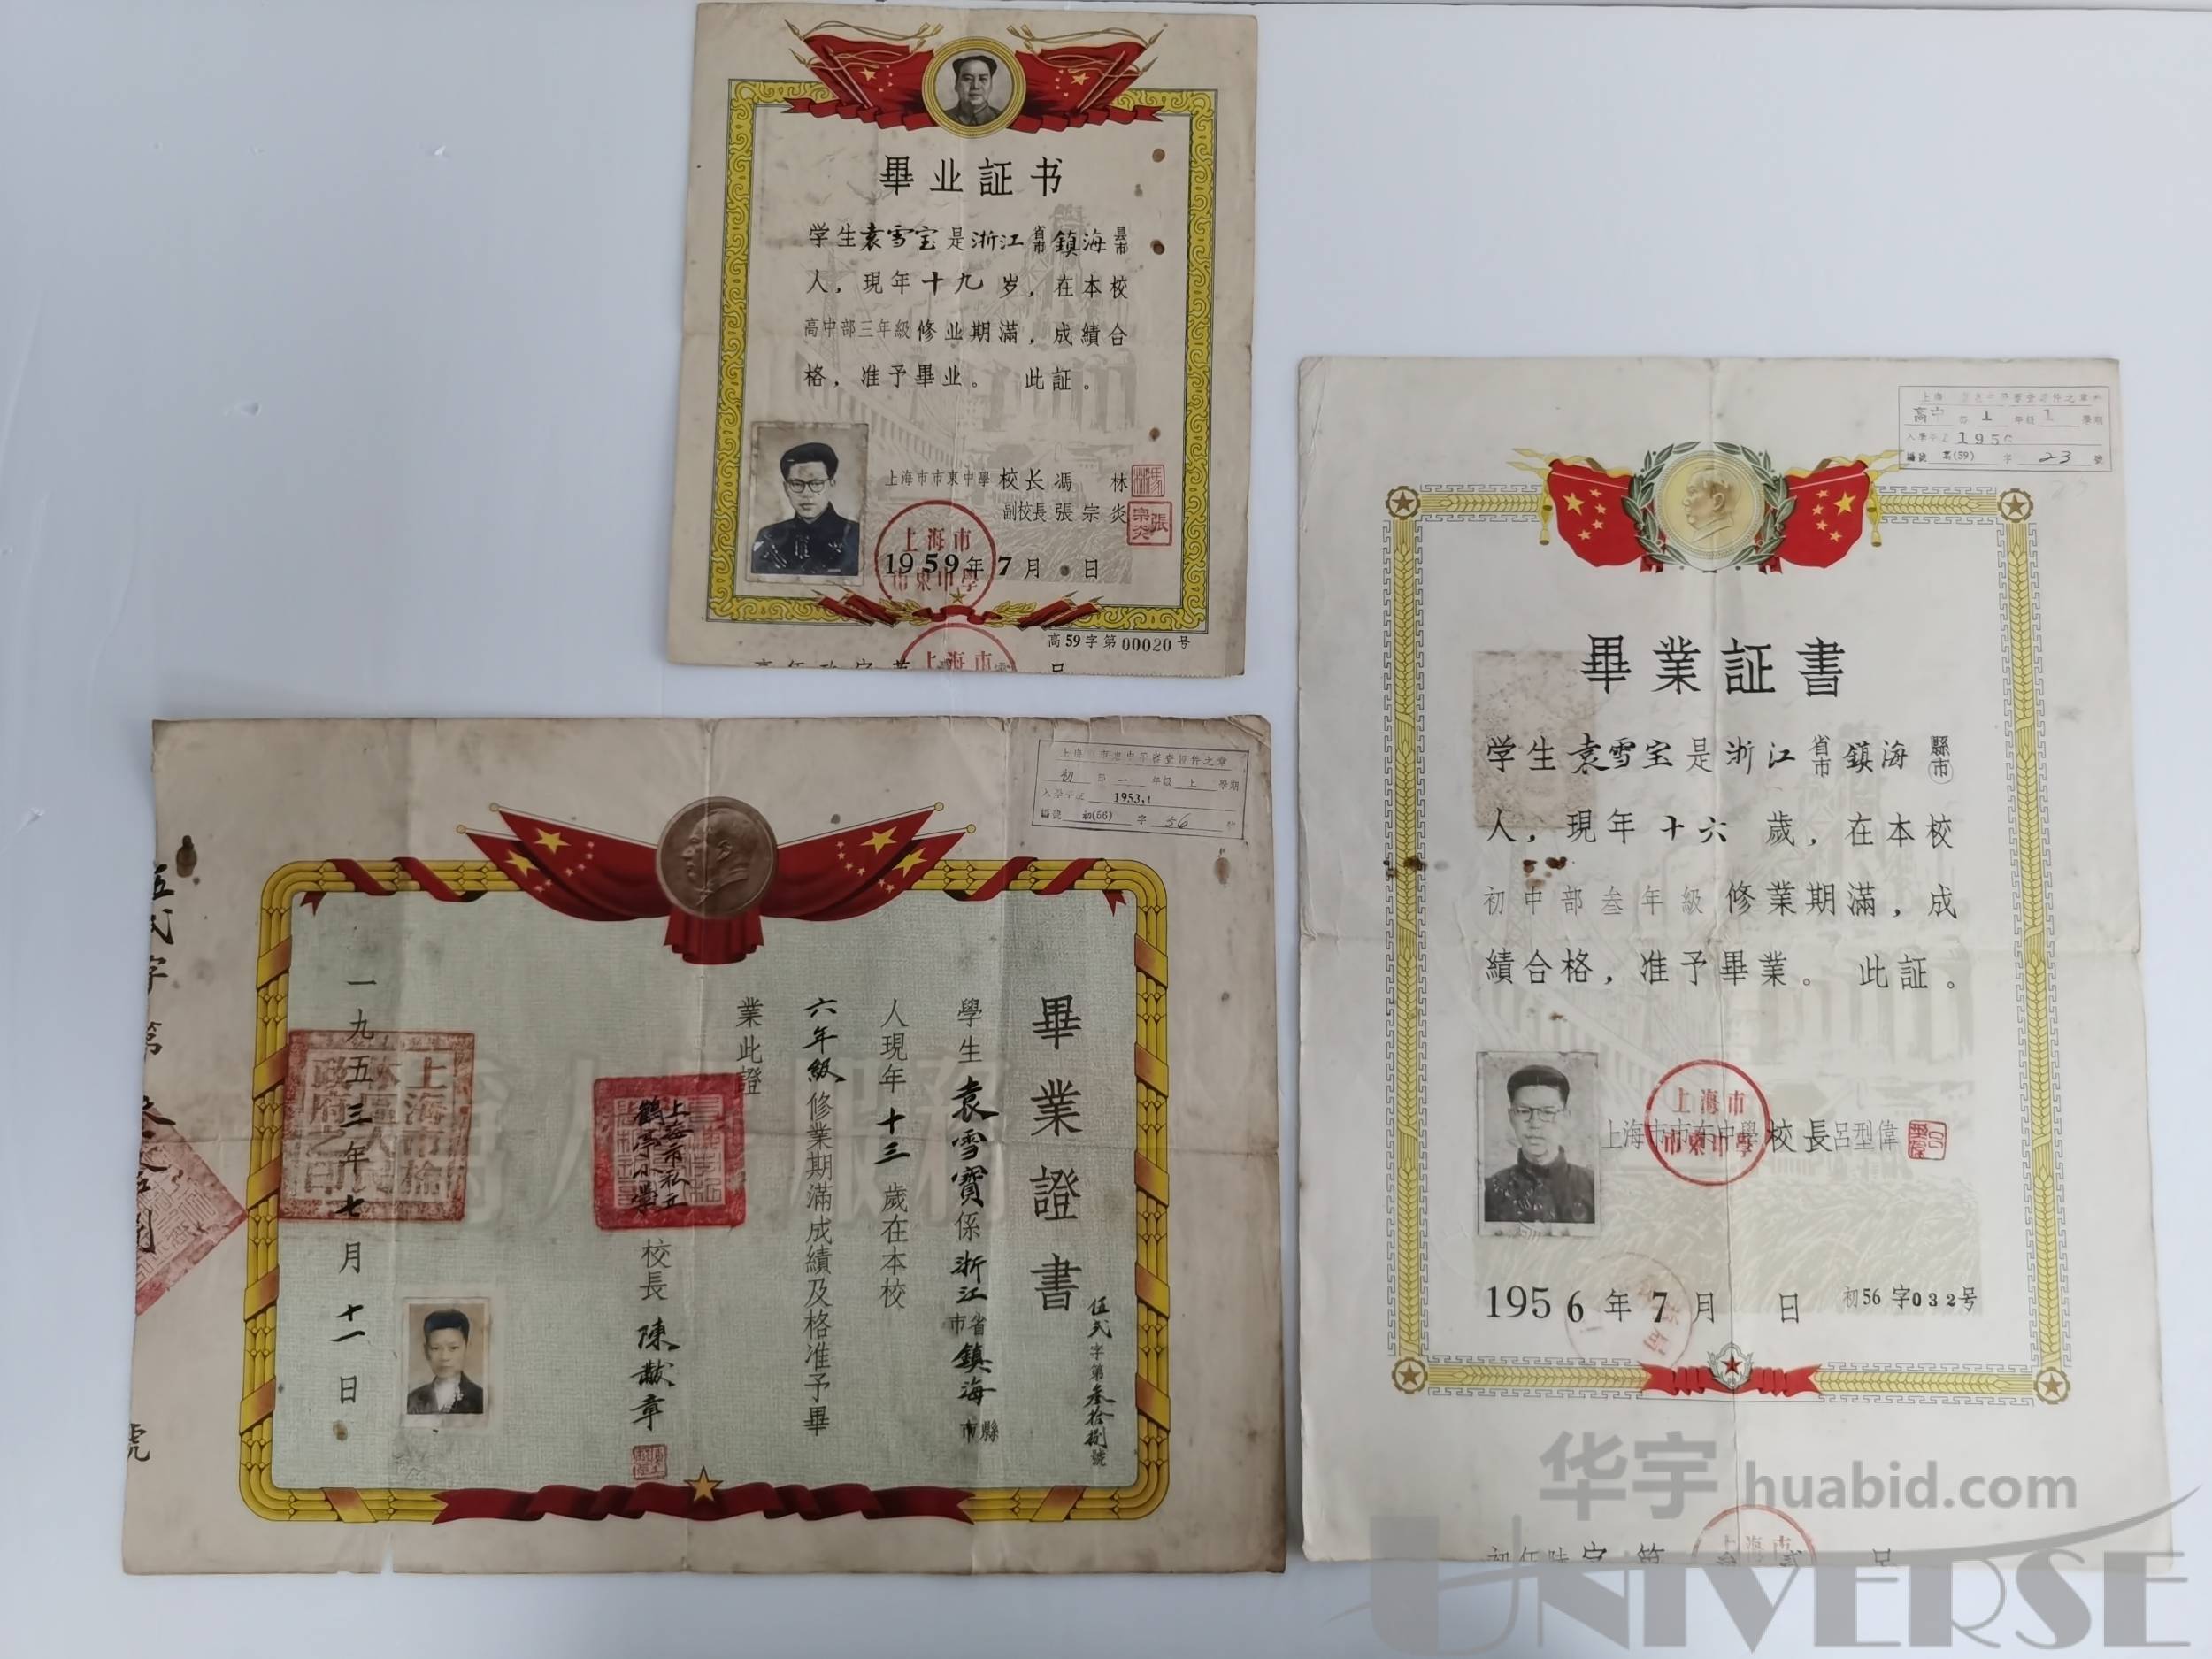 畢业証书
学生袁雪宝是浙江省市鎮海县市
人，現年十九岁，在本校
高中部三年級修业期滿，成績合
格，准予畢业。 此証。
上海市市東中學校长馮 林
副校長張宗炎
張宗炎
上海市
市東中學
1959年7月 日
高59字第00020号
上海市
畢業證書
伍弍字第叁拾捌號
學生袁雪寶係浙江省市鎮海縣市
人現年十三歲在本校
六年級修業期滿成績及格准予畢
業此證
上海市私立
鶴亭小學
校長陳黻章
一九五三年七月十一日
上海市榆
林區人民
政府之印
初 部 一 年級 上 學期
入學年度 1953.1
編號 初(56) 字 56 號
伍弍字第
號
高中 部 1 年級 1 學期
入學年度 1956
編號 高(59) 字 23 號
畢業証書
学生袁雪宝是浙江省市鎮海縣市
人，現年十六歲，在本校
初中部叁年級修業期滿，成
績合格，准予畢業。 此証。
上海市
市東中學
上海市市东中學校長呂型偉
1956年7月 日
初56字032号
上海市
华宇 huabid.com
UNIVERSE